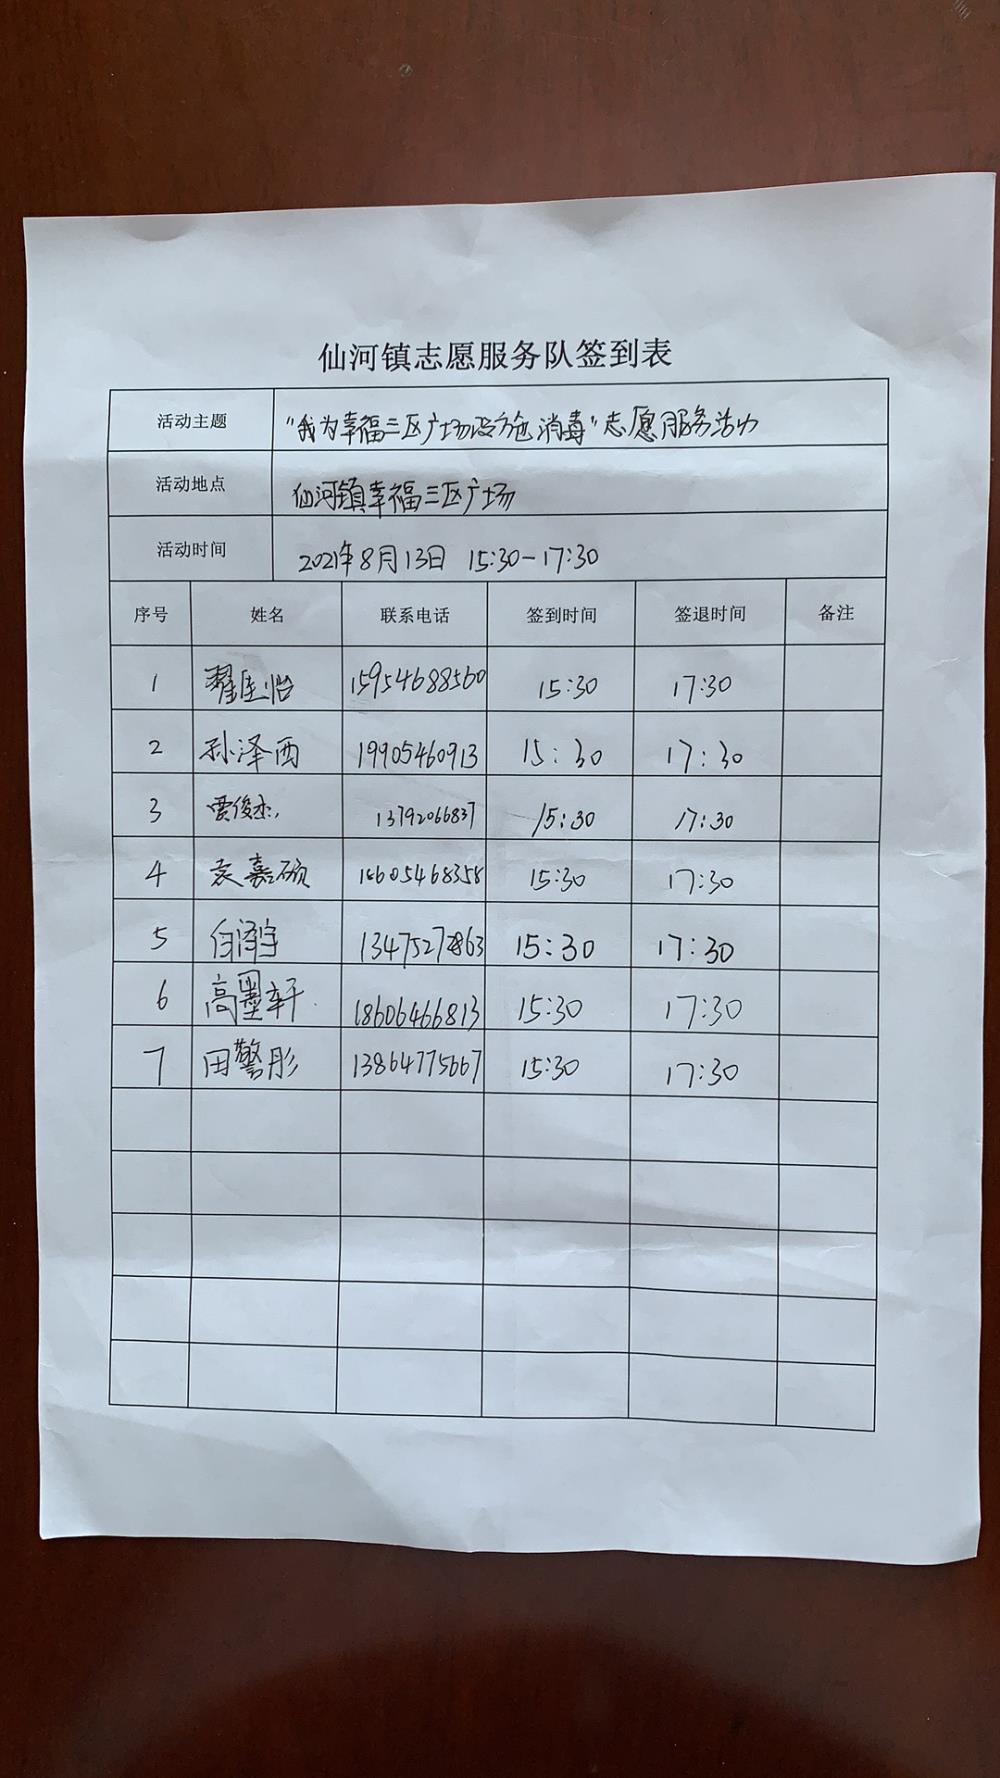 仙河镇志愿服务队签到表
活动主题 "我为幸福三区广场设施消毒"志愿服务活动
活动地点 仙河镇幸福三区广场
活动时间 2021年8月13日 15:30-17:30
序号 姓名 联系电话 签到时间 签退时间 备注
1 翟佳怡 15954688560 15:30 17:30
2 孙泽西 19905460913 15:30 17:30
3 贾俊杰 13792066837 15:30 17:30
4 袁嘉硕 15:30 17:30
5 白泽宇 13475272863 15:30 17:30
6 高墨轩 18606466813 15:30 17:30
7 田警彤 13864775667 15:30 17:30